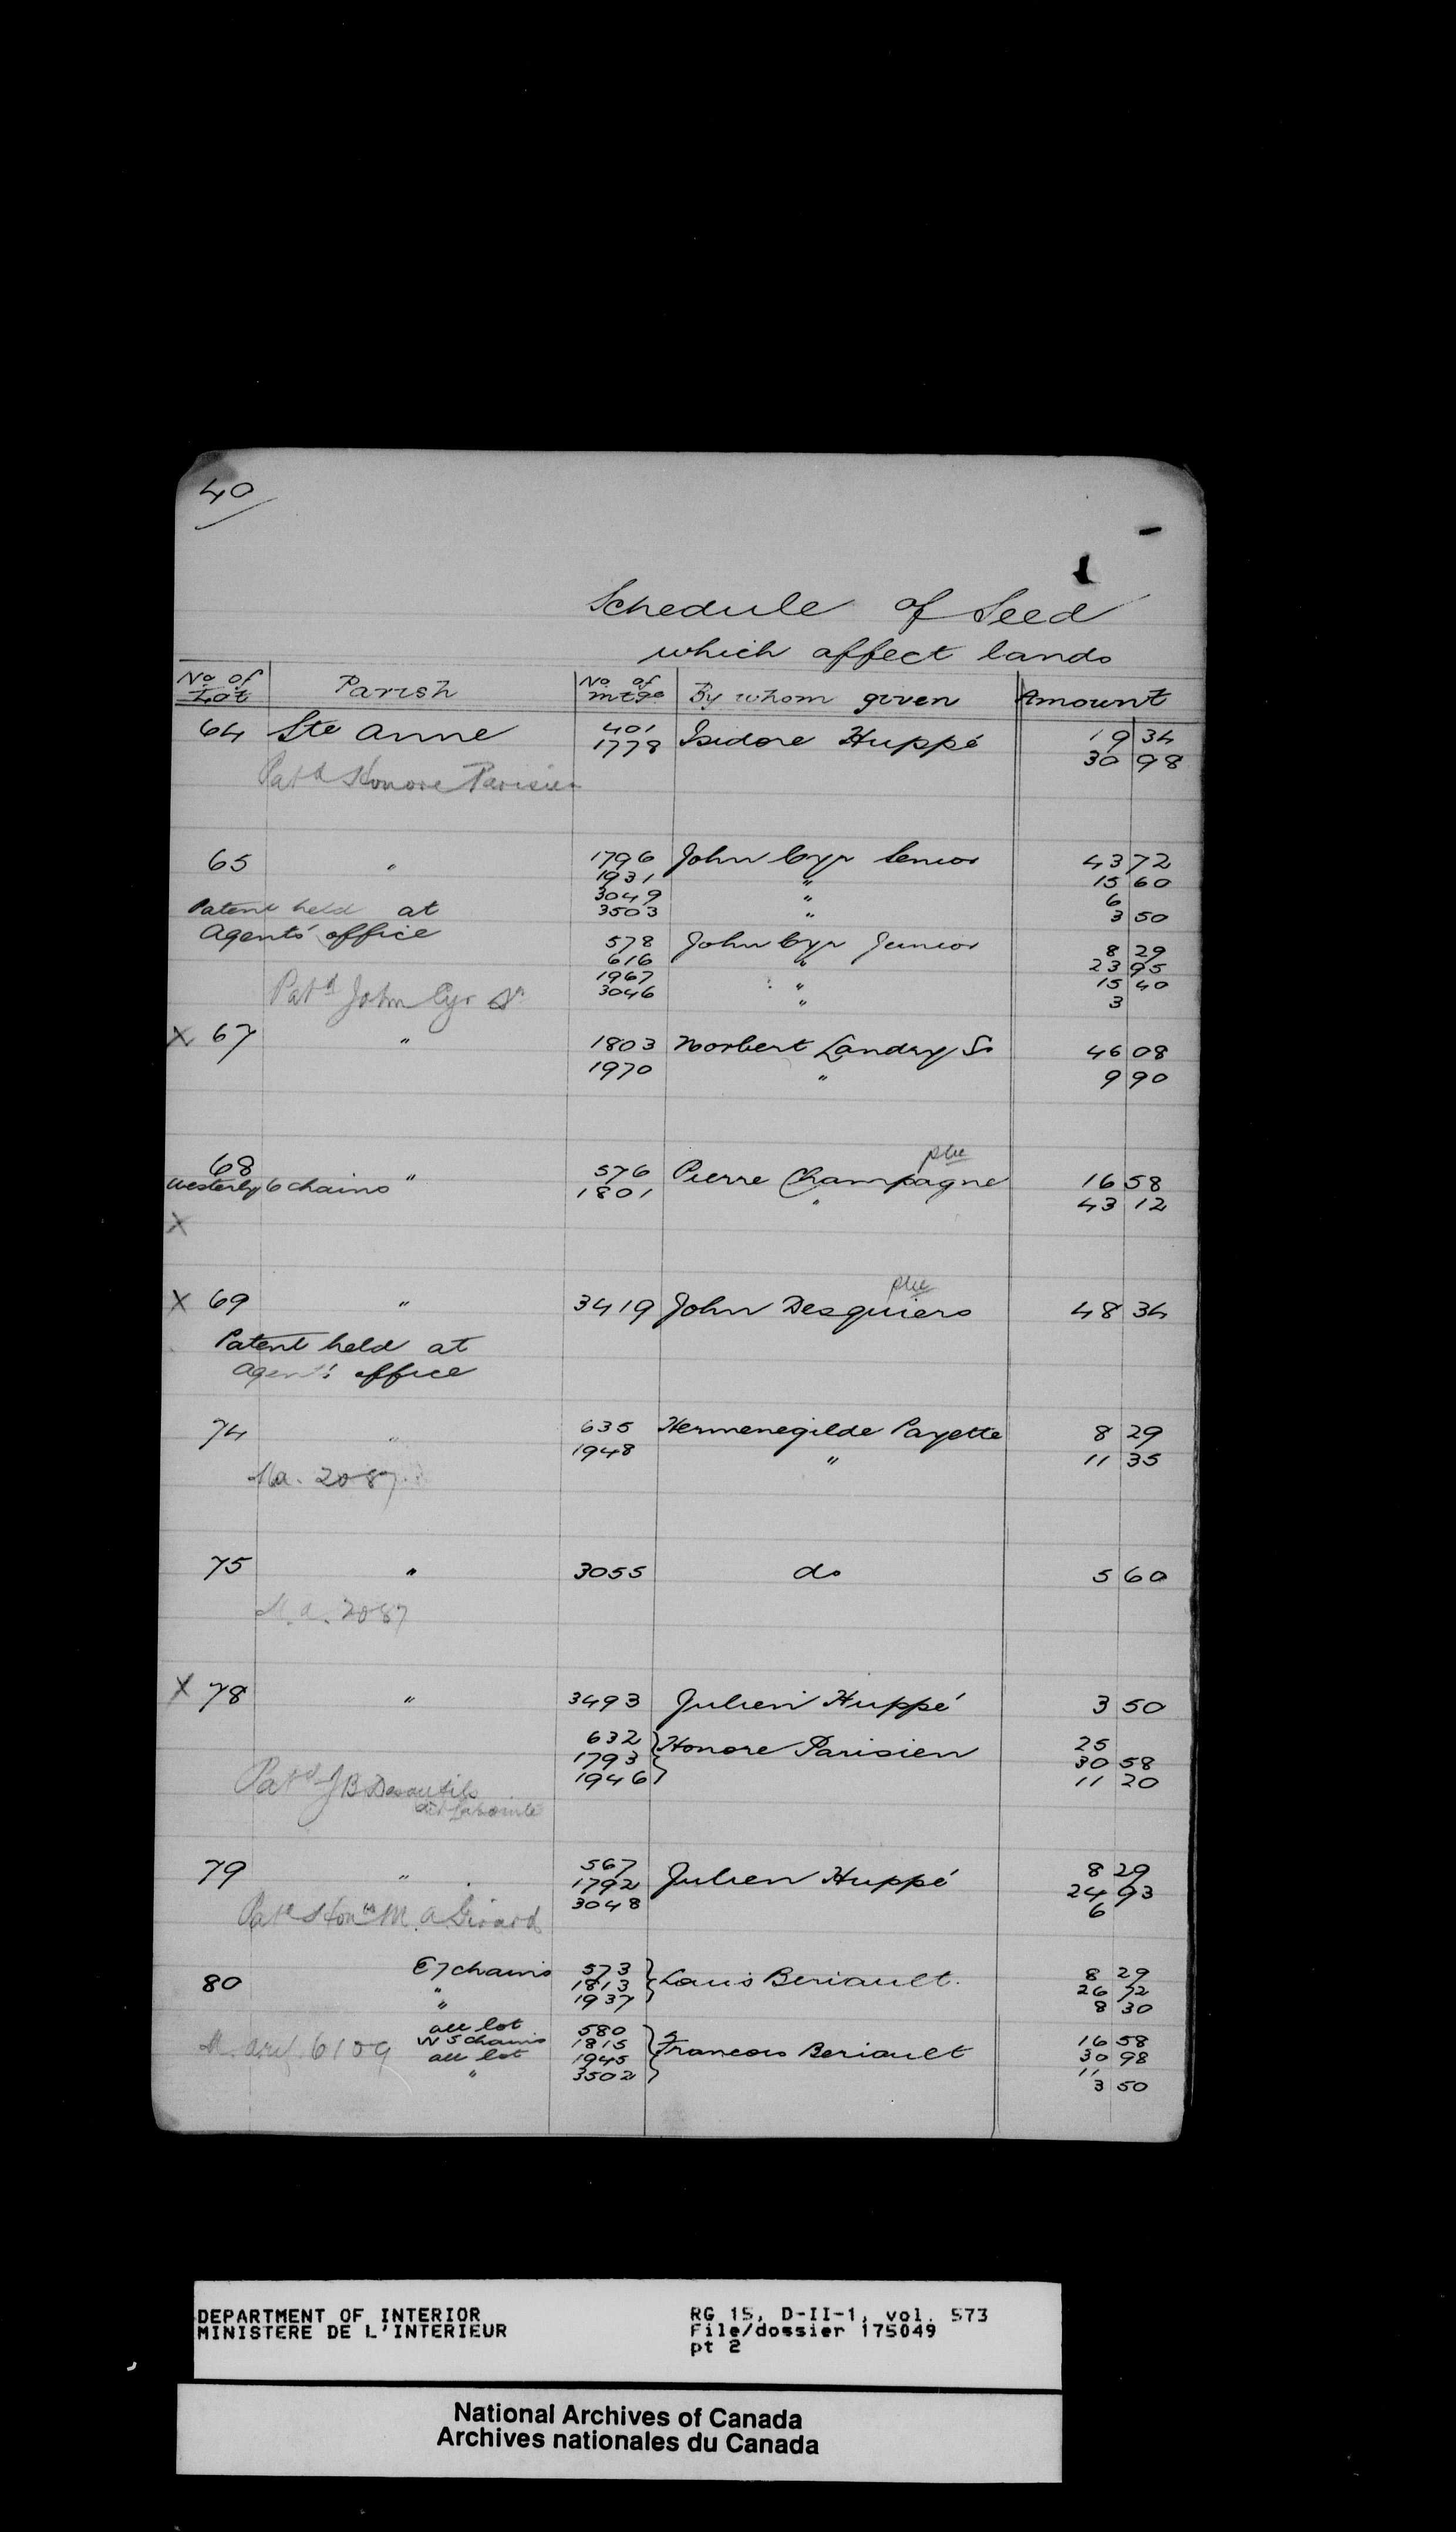 40
Schedule of Seed
which affect lands
No of Lot Parish No of mtge By whom given Amount
64 Ste Anne 401 Isidore Huppé 19 34
1778 30 98
Patd Honore Parisien
65 " 1796 John Cyr Senior 43 72
1931 " 15 60
3049 " 6
Patent held at 3503 " 3 50
Agents' office 578 John Cyr Junior 8 29
616 " 23 95
1967 " 15 40
Patd John Cyr Sr 3046 " 3
X 67 " 1803 Norbert Landry Sr 46 08
1970 " 9 90
68
Westerly 6 chains " 576 Pierre Champagne 16 58
1801 " 43 12
X
X 69 " 3419 John Desquiers 48 34
Patent held at
Agent's office
74 " 635 Hermenegilde Payette 8 29
1948 " 11 35
Ma. 2087
75 " 3055 do 5 60
M.a. 2087
X 78 " 3493 Julien Huppé 3 50
632 Honore Parisien 25
1793 30 58
1946 11 20
Patd J B Desautels
dit Lapointe
79 " 567 Julien Huppé 8 29
1792 24 93
3048 6
Patd Honble M. A Girard
80 E 7 chains 573 Louis Beriault. 8 29
" 1813 26 72
" 1937 8 30
all lot 580 Francois Beriault 16 58
W 5 chains 1815 30 98
all lot 1945 11
" 3502 3 50
6109
DEPARTMENT OF INTERIOR
MINISTERE DE L'INTERIEUR
RG 15, D-II-1, vol. 573
File/dossier 175049
pt 2
National Archives of Canada
Archives nationales du Canada